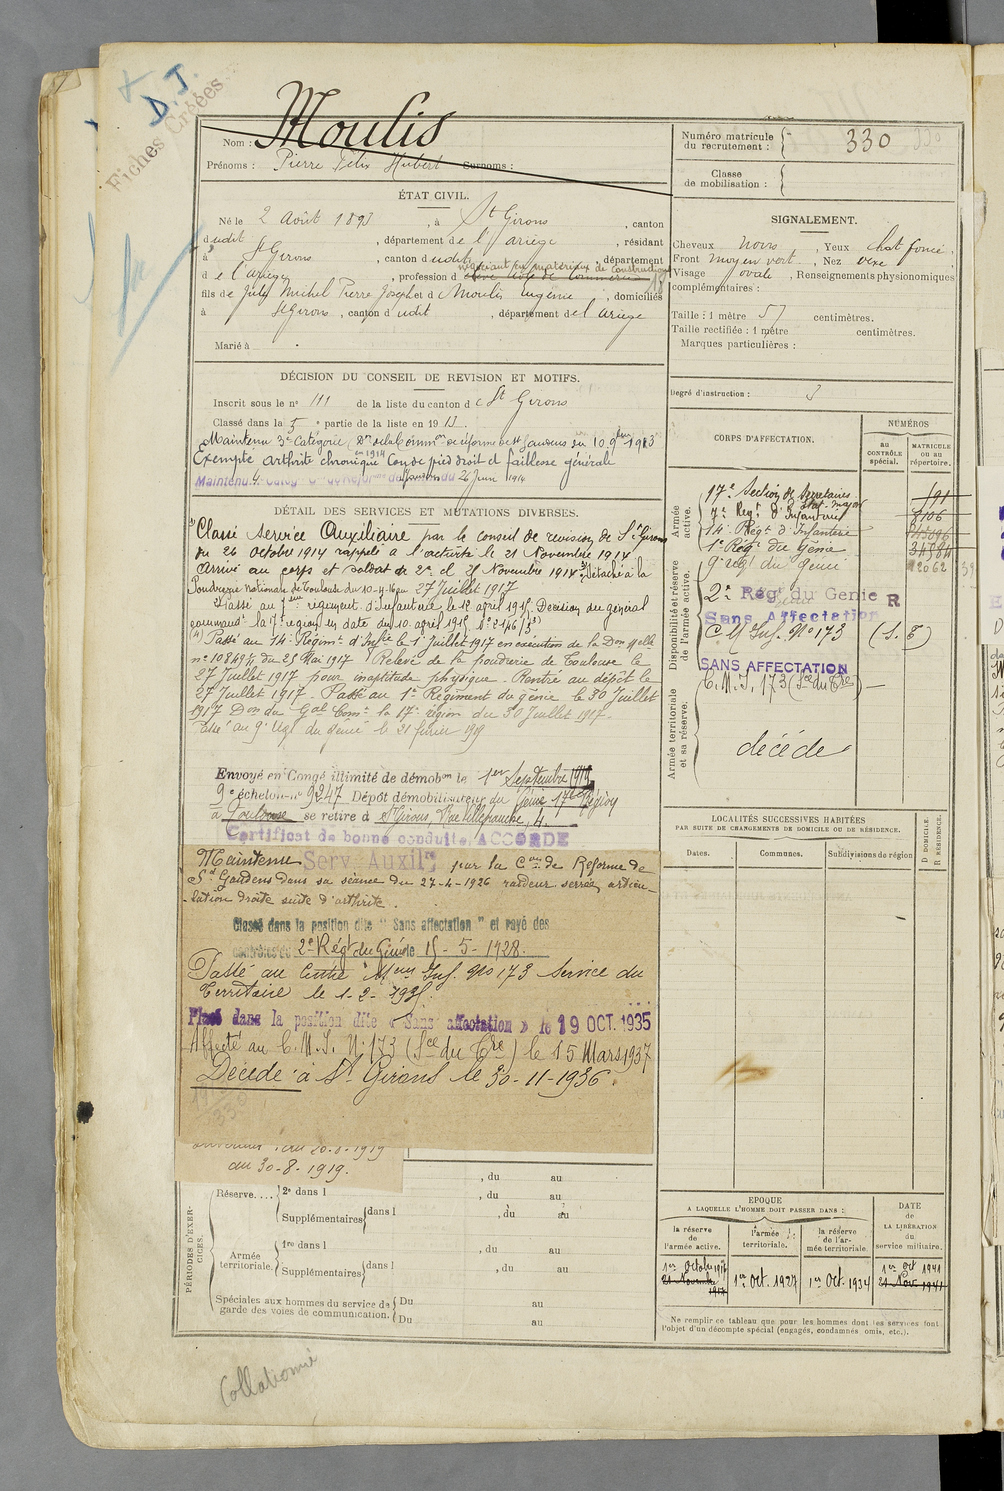 D. J.
Fiches Créées
Nom : Moulis
Prénoms : Pierre Félix Hubert Surnoms :
Numéro matricule du recrutement : 330
Classe de mobilisation :
ÉTAT CIVIL.
Né le 2 Août 1893, à St Girons, canton
dudit, département de l'Ariège, résidant
à St Girons, canton dudit, département
négociant en matériaux de construction
de l'ariège, profession d
fils de Jules Michel Pierre Joseph et d Moulis Eugénie, domiciliés
à St Girons, canton dudit, département de l'ariège
Marié à
SIGNALEMENT.
Cheveux noirs, Yeux chat foncé,
Front moyen vert., Nez vexe
Visage ovale, Renseignements physionomiques
complémentaires :
Taille : 1 mètre 57 centimètres.
Taille rectifiée : 1 mètre centimètres.
Marques particulières :
Degré d'instruction : 3
DÉCISION DU CONSEIL DE REVISION ET MOTIFS.
Inscrit sous le n° 111 de la liste du canton de St Girons
Classé dans la 5e partie de la liste en 1913.
Maintenu 3e Catégorie, Don de la Comm on de réforme de St Gaudens du 10 9bre 1913
Exempté en 1914 arthrite chronique Cou de pied droit et faillesse générale
26 Juin 1914
DÉTAIL DES SERVICES ET MUTATIONS DIVERSES.
Classé Service Auxiliaire par le conseil de revision de St Girons
du 26 octobre 1914 rappelé à l'activité le 21 Novembre 1914
Arrivé au corps et soldat de 2e cl 21 Novembre 1914 Détaché à la
Poudrerie Nationale de Toulouse du 10-4-16 au 27 Juillet 1917
Passé au 7eme régiment d'Infanterie le 18 avril 1915. Décision du général
command t la 17e region en date du 10 avril 1915 n° 2146/3
(4) Passé au 14e Régim t d'Inf ie le 1er Juillet 1917 en exécution de la Don M elle
n° 10845 1/4 du 25 Mai 1917 Relevé de la poudrerie de Toulouse le
27 Juillet 1917 pour inaptitude physique. Rentré au dépôt le
27 Juillet 1917. Passé au 1er Régiment du génie le 30 Juillet
1917 Don du Gal Com t la 17e région du 30 Juillet 1917.
Passé au 9e Régt du Génie le 21 février 1919
Envoyé en Congé illimité de démobon le 1er Septembre 1919
9e échelon n° 9247 Dépôt démobilisateur du Génie 17eme Région
à Toulouse se retire à St Girons, Rue Villefranche, 4.
Certificat de bonne conduite ACCORDÉ
Maintenu Serv. Auxil re par la Con de Réforme de
St Gaudens dans sa séance du 27-4-1926 raideur serrée articu
lation droite suite d'arthrite.
Classé dans la position dite "Sans affectation" et rayé des
contrôles du 2e Régt du Génie le 15-5-1928.
Passé au Centre M eur Inf. No 173 Service du
Territoire le 1-2-
Placé dans la position dite « Sans affectation » le 19 OCT. 1935
Affecté au C.M.I. N° 173 (Sce du Tre) le 15 Mars 1937
Décédé à St Girons le 30-11-1936.
au 30-8-1919.
CORPS D'AFFECTATION.
NUMÉROS
au CONTRÔLE spécial.
MATRICULE OU au répertoire.
Armée active.
17e Section de Secrétaires Etat-major 191
7e Régt d'Infanterie 8106
14e Régt d'Infanterie
1er Régt du Génie 34984
9e régt du génie 12062
Disponibilité et réserve de l'armée active.
2e Régt du Génie R
Sans Affectation
C M Inf. No 173 (S. T)
SANS AFFECTATION
C.M.I. 173 (Sce du Tre)
Armée territoriale et sa réserve.
décédé
LOCALITÉS SUCCESSIVES HABITÉES
PAR SUITE DE CHANGEMENTS DE DOMICILE OU DE RÉSIDENCE.
Dates. Communes. Subdivisions de région
D DOMICILE. R RÉSIDENCE.
PÉRIODES D'EXERCICES.
, du au
Réserve.... 2e dans l , du au
Supplémentaires dans l , du au
Armée territoriale. 1re dans l , du au
Supplémentaires dans l , du au
Spéciales aux hommes du service de garde des voies de communication. Du au
Du au
EPOQUE
A LAQUELLE L'HOMME DOIT PASSER DANS :
la réserve de l'armée active.
l'armée territoriale.
la réserve de l'armée territoriale
DATE de LA LIBÉRATION du service militaire.
1er Octobre 1917
21 Novembre 1917
1er Oct. 1927
1er Oct. 1934
1er Oct 1941
21 Nov. 1941
Ne remplir ce tableau que pour les hommes dont les services font
l'objet d'un décompte spécial (engagés, condamnés omis, etc.).
Collationné